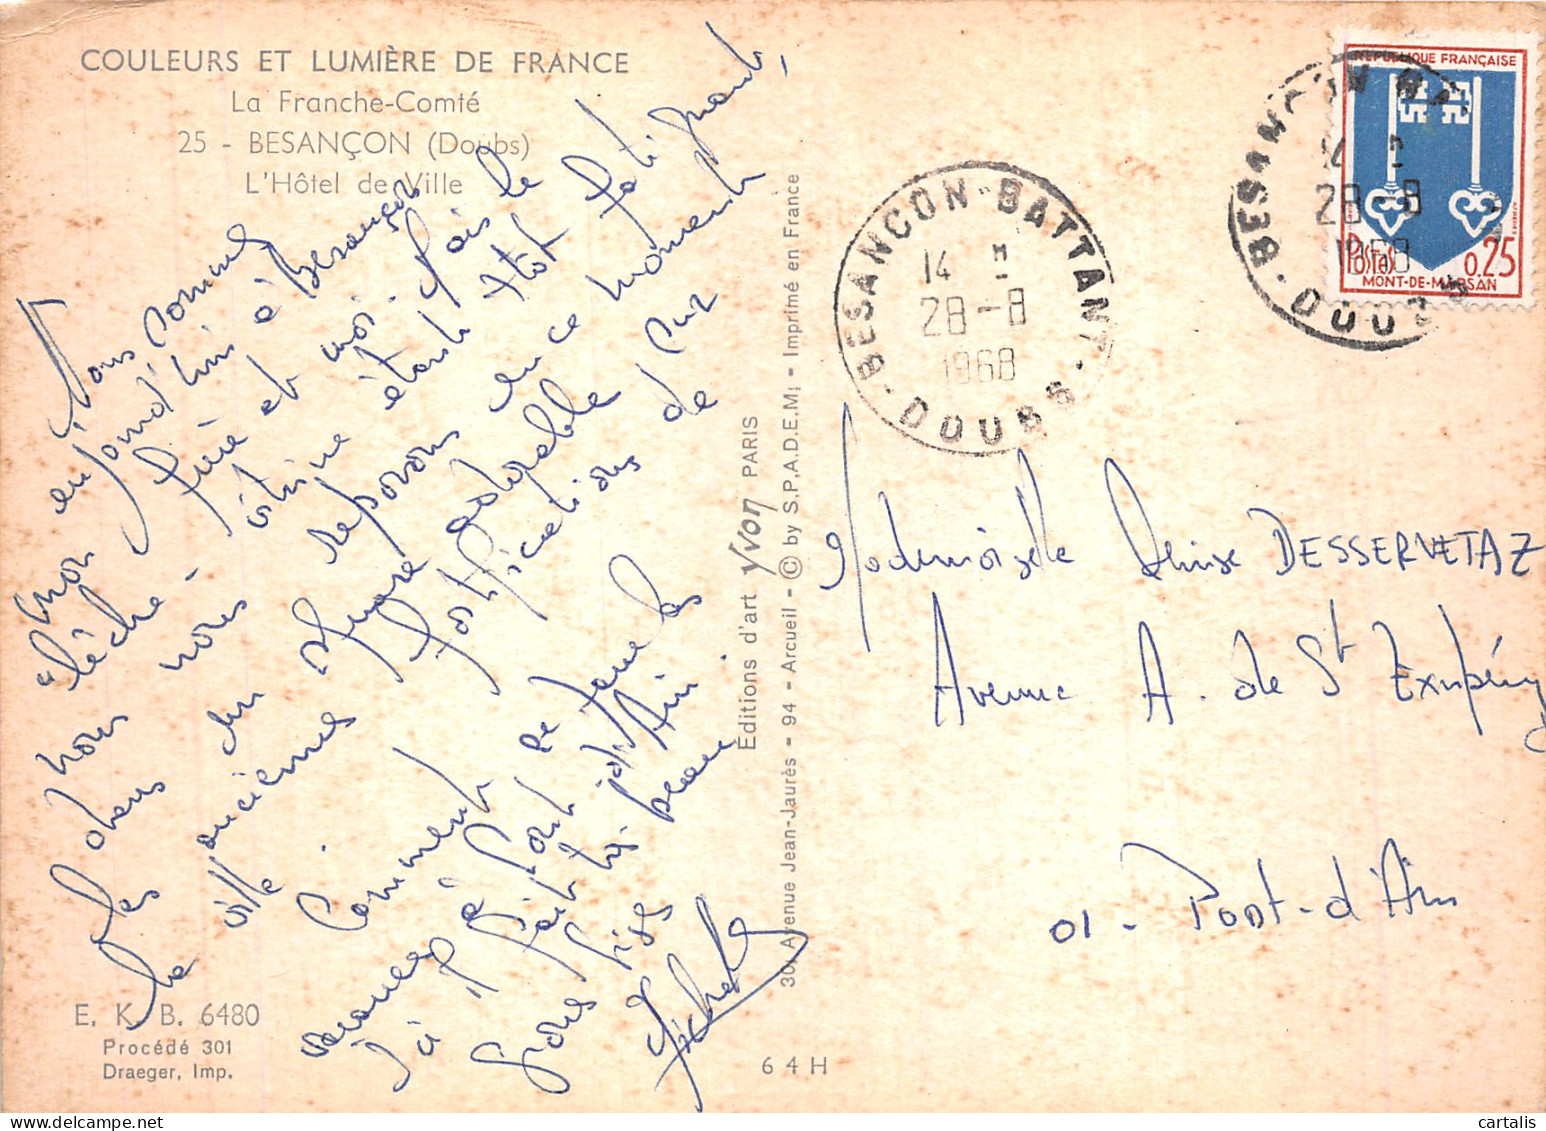 COULEURS ET LUMIÈRE DE FRANCE
La Franche-Comté
25 - BESANÇON (Doubs)
L'Hôtel de Ville
Nous sommes
aujourd'hui à Besançon
mon frère et moi. Fais le
lèche vitrine étant très fatigant,
nous nous reposons en ce moment
dans un square adorable sur
les anciennes fortifications de
la ville.
Comment se passe les
vacances à Pont d'Ain
Ici il fait très beau
Grosses bises
Michelle
E. K. B. 6480
Procédé 301
Draeger, Imp.
Éditions d'art yvon PARIS
301 Avenue Jean-Jaurès - 94 - Arcueil - © by S.P.A.D.E.M. - Imprimé en France
64H
BESANCON-BATTANT
14 H
28-8
1968
DOUBS
BESANCON BA
14
28-8
1968
DOUBS
RÉPUBLIQUE FRANÇAISE
POSTES
0,25
MONT-DE-MARSAN
Mademoiselle Denise DESSERVETAZ
Avenue A. de St Exupéry
01 - Pont-d'Ain
cartalis